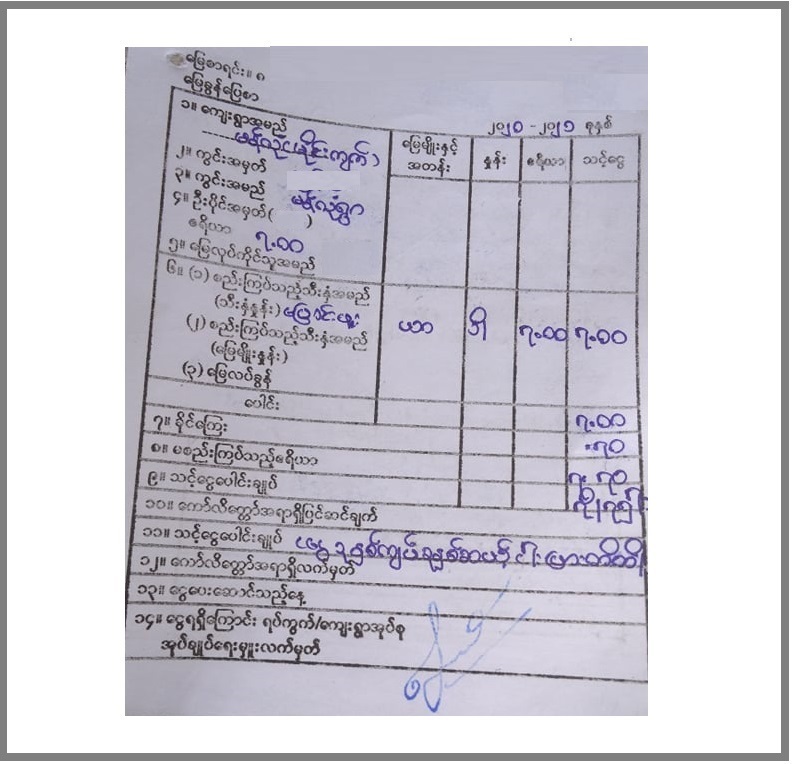 မြေစာရင်း။ ၈
မြေခွန်ပြေစာ
၂၀၂၀ - ၂၀၂၁ ခုနှစ်
၁။ ကျေးရွာအမည်
မြေမျိုးနှင့် အတန်း
နှုန်း
ဧရိယာ
သင့်ငွေ
၂။ ကွင်းအမှတ်
၃။ ကွင်းအမည်
၄။ ဦးပိုင်အမှတ်( )
ဧရိယာ ၇.၀၀
၅။ မြေလုပ်ကိုင်သူအမည်
၆။ (၁) စည်းကြပ်သည့်သီးနှံအမည်
(သီးနှံနှုန်း) ပြောင်းဖူး
ယာ ၇.၀၀ ၇.၀၀
(၂) စည်းကြပ်သည့်သီးနှံအမည်
(မြေမျိုးနှုန်း)
(၃) မြေလပ်ခွန်
ပေါင်း ၇.၀၀
၇။ ခိုင်ကြေး .၇၀
၈။ မစည်းကြပ်သည့်ဧရိယာ ၇.၇၀
၉။ သင့်ငွေပေါင်းချုပ်
၁၀။ ကော်လိတ္တော်အရာရှိပြင်ဆင်ချက်
၁၁။ သင့်ငွေပေါင်းချုပ်
၁၂။ ကော်လိတ္တော်အရာရှိလက်မှတ်
၁၃။ ငွေပေးဆောင်သည့်နေ့
၁၄။ ငွေရရှိကြောင်း ရပ်ကွက်/ကျေးရွာအုပ်စု
အုပ်ချုပ်ရေးမှူးလက်မှတ်